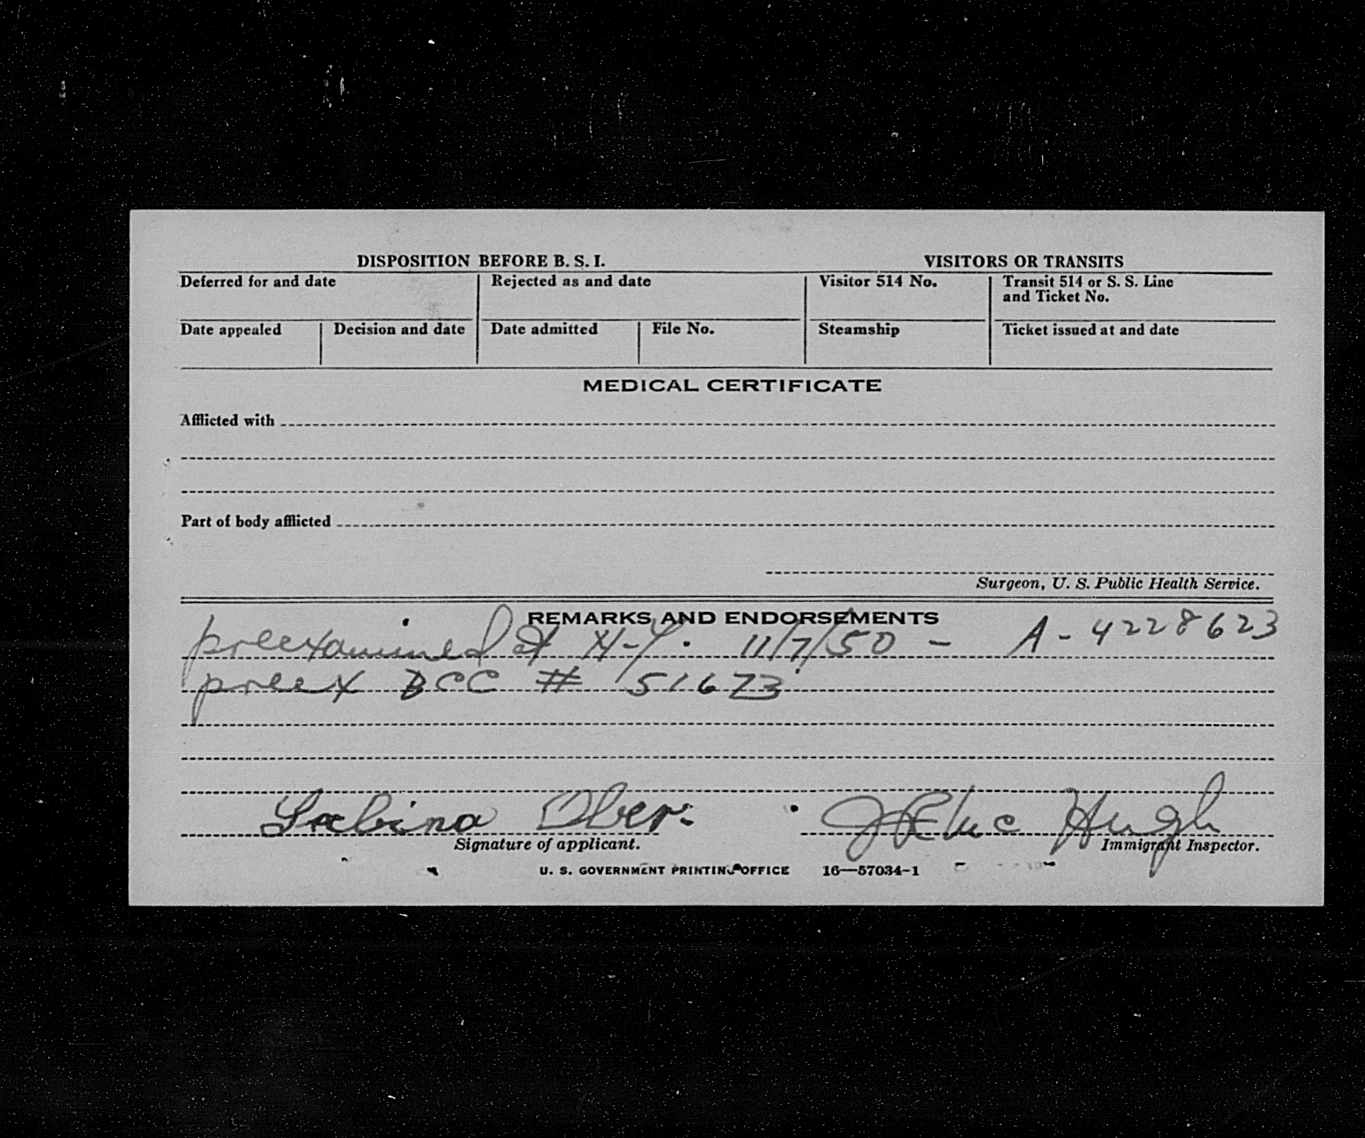 DISPOSITION BEFORE B. S. I. VISITORS OR TRANSITS
Deferred for and date Rejected as and date Visitor 514 No. Transit 514 or S. S. Line
and Ticket No.
Date appealed Decision and date Date admitted File No. Steamship Ticket issued at and date
MEDICAL CERTIFICATE
Afflicted with
Part of body afflicted
Surgeon, U. S. Public Health Service.
REMARKS AND ENDORSEMENTS
preexamined at N-Y. 11/7/50 - A-4228623
preex BCC # 51673
Sabina Ober. Hugh
Signature of applicant. Immigrant Inspector.
U. S. GOVERNMENT PRINTING OFFICE 16—57034-1